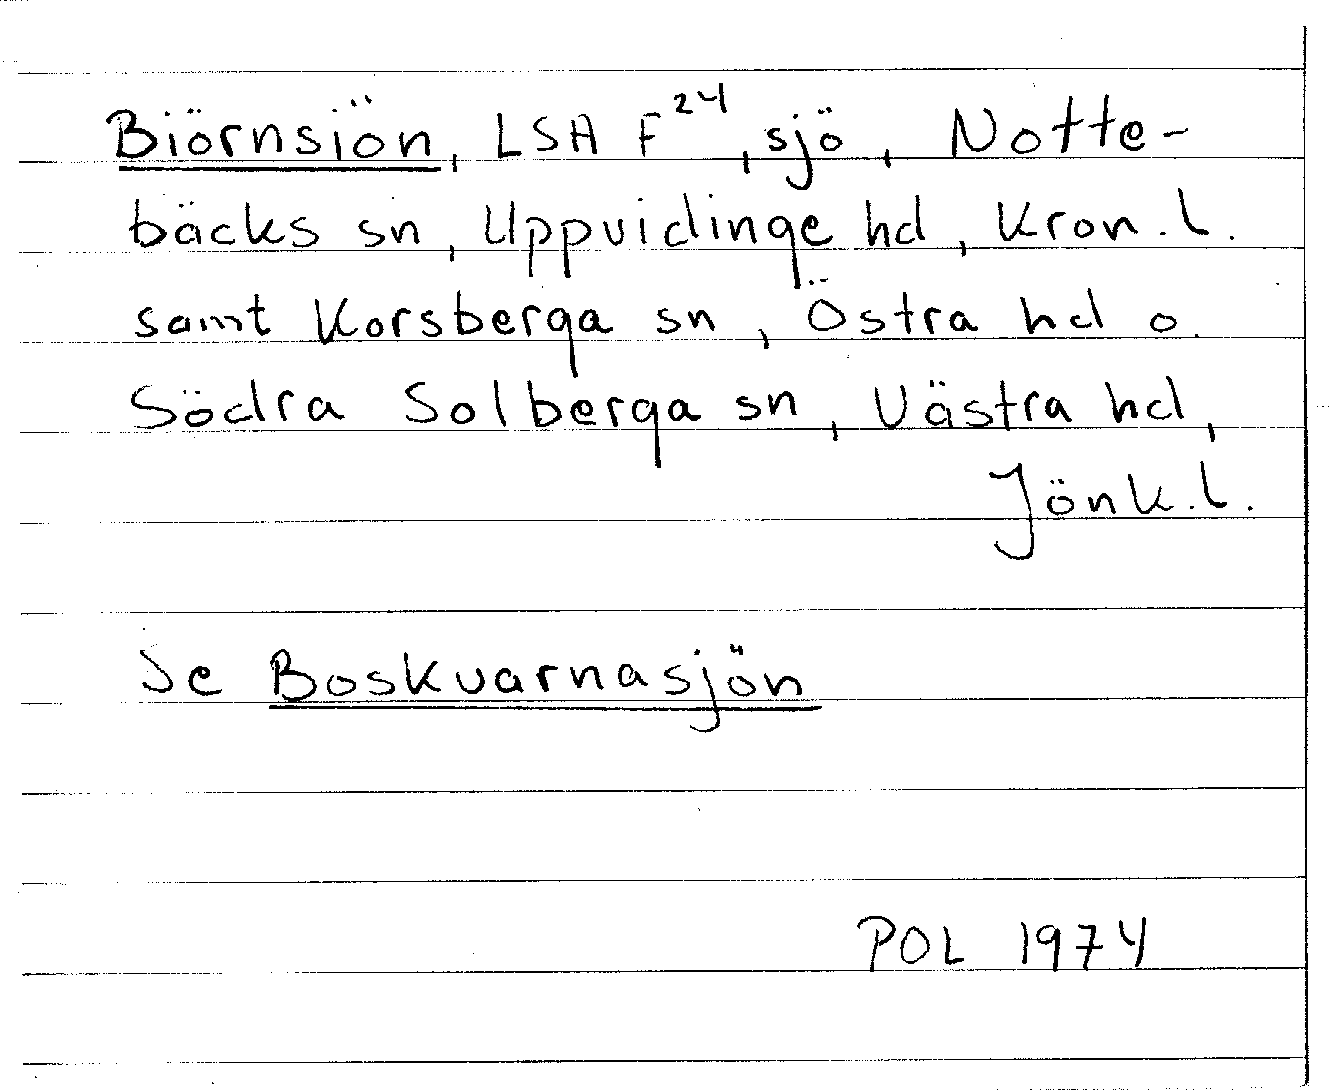 Biörnsiön, LSA F24, sjö, Notte-
bäcks sn, Uppvidinge hd, Kron.l.
samt Korsberga sn, Östra hd o.
Södra Solberga sn, Västra hd,
Jönk.l.
Se Boskvarnasjön
POL 1974